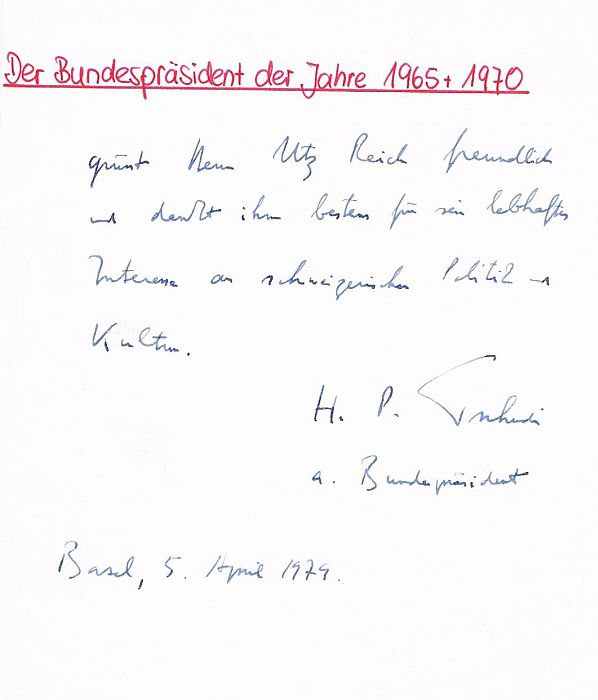 Der Bundespräsident der Jahre 1965 + 1970
grüsst Herrn Utz Reich freundlich
und dankt ihm bestens für sein lebhaftes
Interesse an schweizerischer Politik und
Kultur.
H. P. Tschudi
a. Bundespräsident
Basel, 5. April 1979.